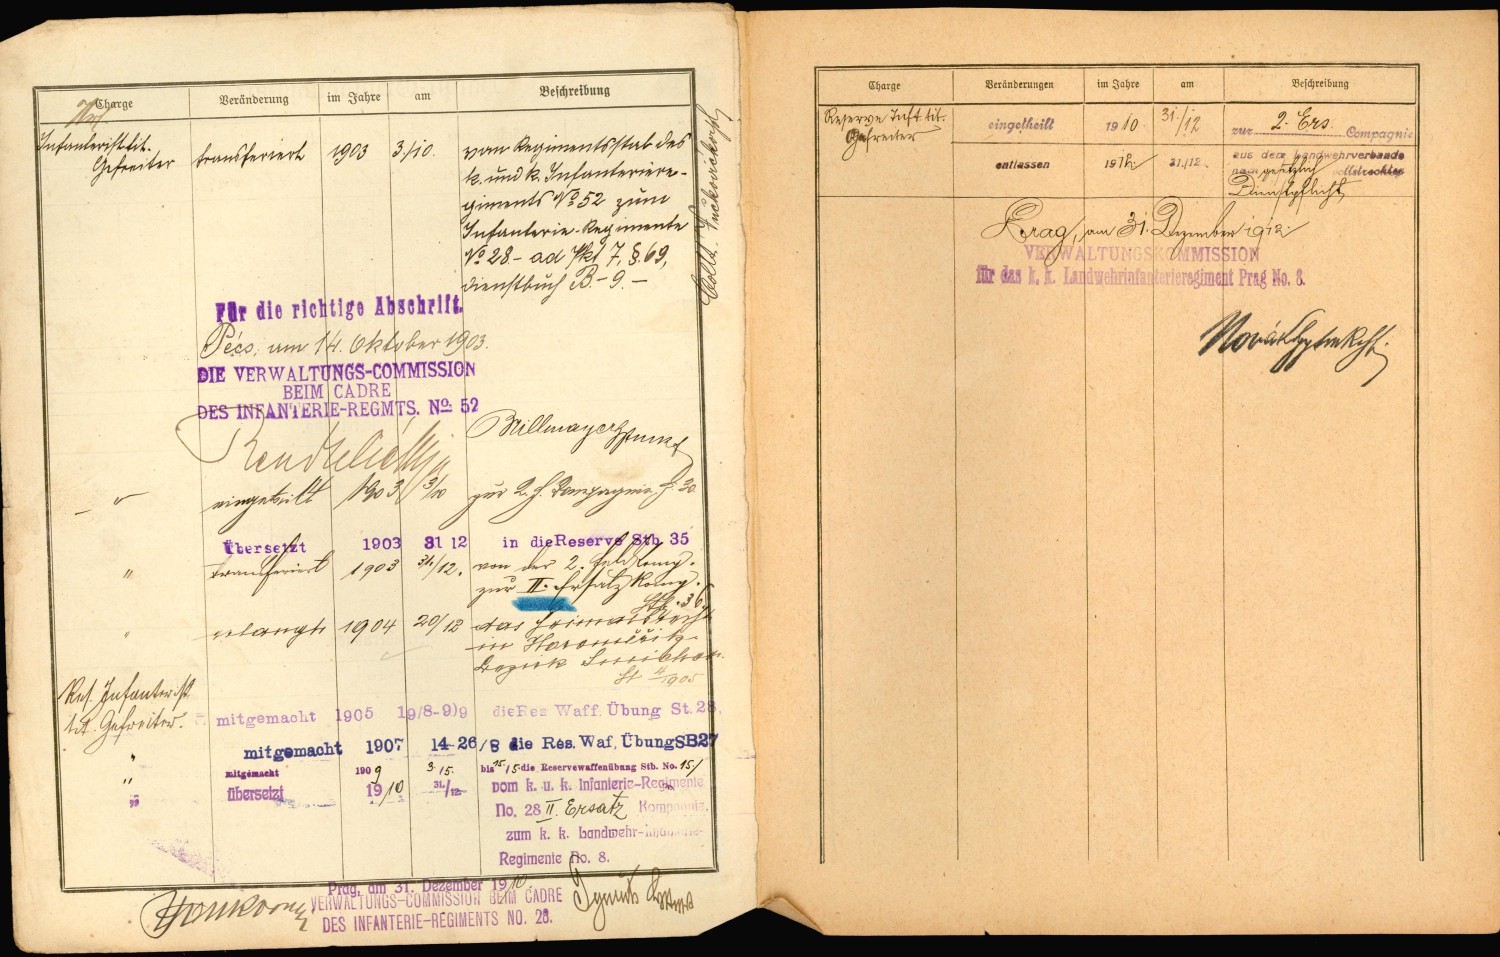 Charge Veränderung im Jahre am Beschreibung
Infanterist tit.
Gefreiter transferiert 1903 3./10. vom Regimentsstab des
k. und k. Infanteriere-
giments No 52 zum
Infanterie-Regimente
No 28 – ad Pkt 7, §. 69,
Dienstbuch B.-9. –
Für die richtige Abschrift.
Pécs, am 14. Oktober 1903.
DIE VERWALTUNGS-COMMISSION
BEIM CADRE
DES INFANTERIE-REGMTS. No. 52
" eingeteilt 1903 3/10 zur 2. F. Compagnie
Übersetzt 1903 31 12 in die Reserve Stb. 35
" transferiert 1903 31/12. von der 2. Feldkomp.
zur II. Ersatzkomp.
Stb. 36
" erlangte 1904 20/12 das Heimatsrecht
in
Bezirk Smichow
St 4/1905
Res. Infanterist
tit. Gefreiter. mitgemacht 1905 19/8-9)9 die Res Waff. Übung St. 28.
" mitgemacht 1907 14-26/8 die Res. Waf, Übung SB 27
" mitgemacht 1909 3. 15. bis 15/5. die Reservewaffenübung Stb. No. 15/
" übersetzt 1910 31./12. vom k. u. k. Infanterie-Regimente
No. 28 II. Ersatz Kompagnie.
zum k. k. Landwehr-Infanterie-
Regimente No. 8.
Prag, am 31. Dezember 1910.
VERWALTUNGS-COMMISSION BEIM CADRE
DES INFANTERIE-REGIMENTS NO. 28.
Charge Veränderungen im Jahre am Beschreibung
Reserve Inft. tit.
Gefreiter eingetheilt 1910. 31./12 zur 2. Ers. Compagnie
entlassen 1912. 31./12. aus dem Landwehrverbande
nach gesetzlich vollstreckter
Dienstpflicht,
Prag, am 31. Dezember 1912.
VERWALTUNGSKOMMISSION
für das k. k. Landwehrinfanterieregiment Prag No. 8.